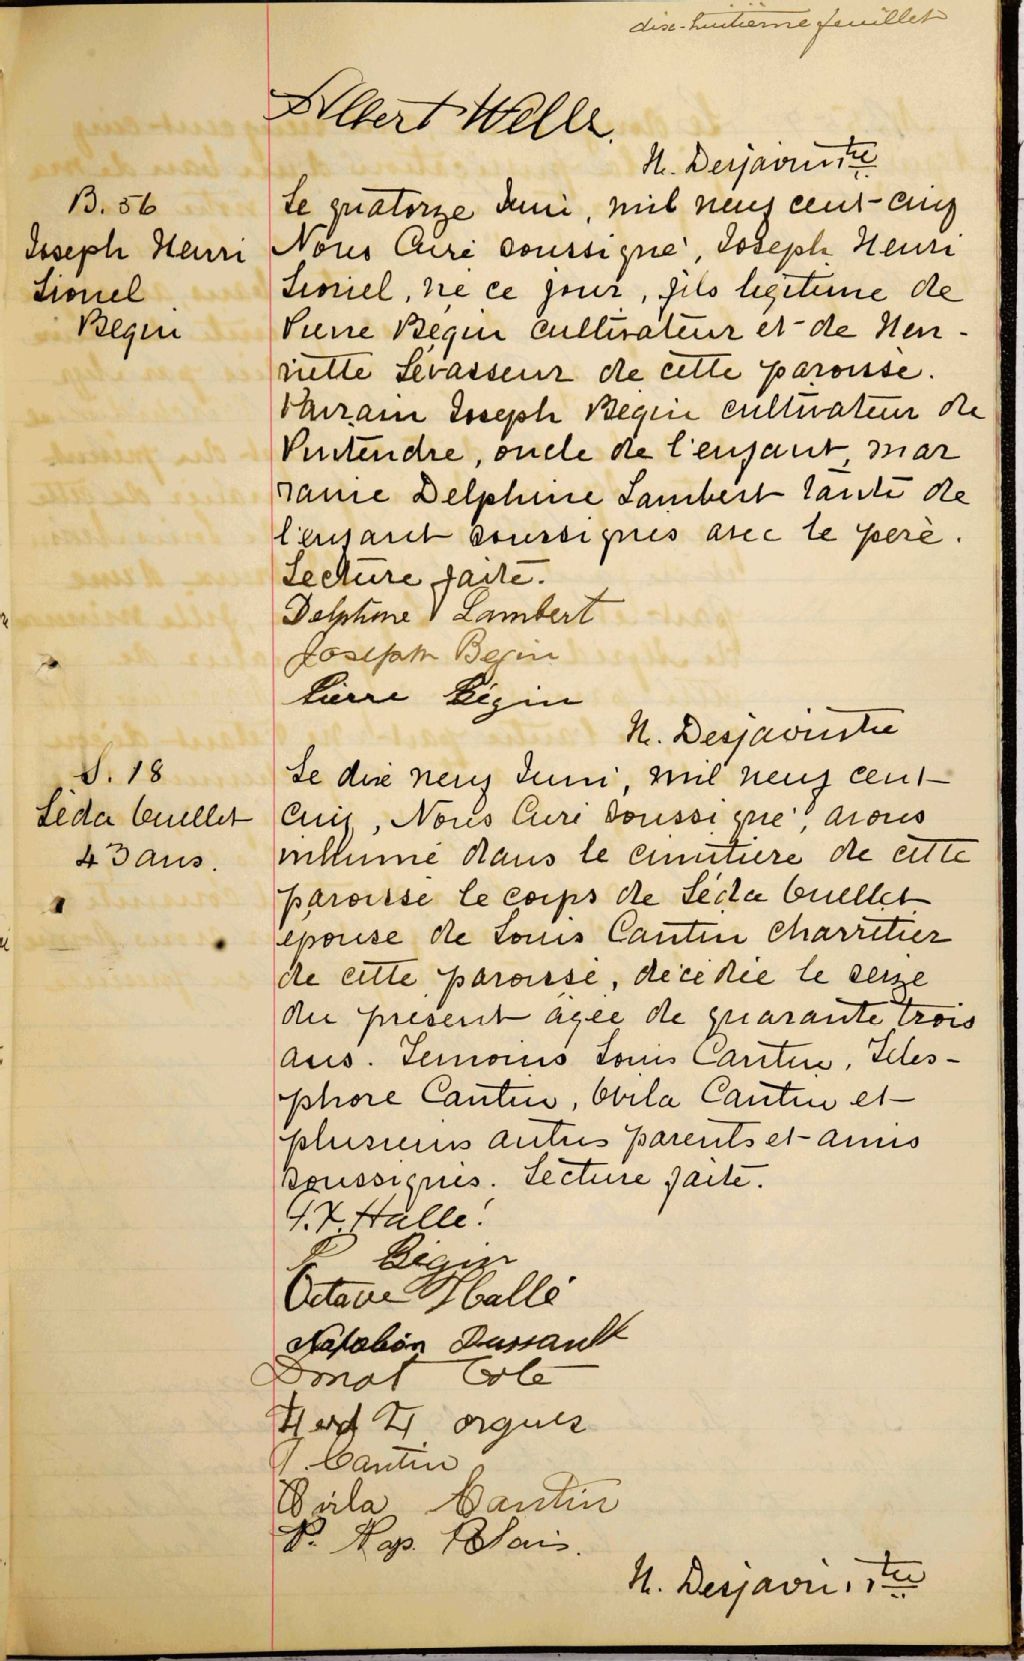 dix-huitième feuillet
Albert Wells.
N. Desjardins Ptre
B. 56
Joseph Henri
Lionel
Bégin
Le quatorze Juin, mil neuf cent-cinq
Nous Curé soussigné, Joseph Henri
Lionel, né ce jour, fils légitime de
Pierre Bégin cultivateur et de Hen-
riette Lévasseur de cette paroisse.
Parrain Joseph Bégin cultivateur de
Pintendre, oncle de l'enfant, mar
raine Delphine Lambert tante de
l'enfant soussignés avec le père.
Lecture faite.
Delphine Lambert
Joseph Begin
Pierre Bégin
N. Desjardins Ptre
S. 18
Léda Ouellet
43 ans.
Le dix neuf Juin, mil neuf cent
cinq, Nous Curé soussigné, avons
inhumé dans le cimetière de cette
paroisse le corps de Léda Ouellet
épouse de Louis Cantin charretier
de cette paroisse, décédée le seize
du présent âgée de quarante trois
ans. Temoins Louis Cantin, Téles-
phore Cantin, Ovila Cantin et
plusieurs autres parents et amis
soussignés. Lecture faite.
F.X. Hallé.
P Bégin
Octave Hallé
Napoléon Dussault
Donat Coté
Ferd Forgues
T. Cantin
Ovila Cantin
P. Nap. Blais.
N. Desjardins Ptre